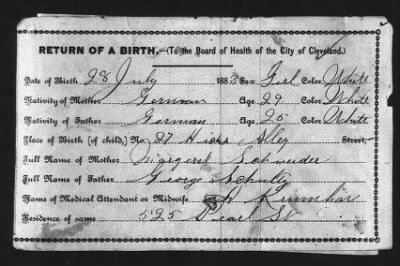 RETURN OF A BIRTH.—(To the Board of Health of the City of Cleveland.)
Date of Birth, 28 July 1883 Sex Girl Color White
Nativity of Mother German Age 29 Color White
Nativity of Father German Age 25 Color White
Place of Birth (of child,) No. 27 Hicks Alley Street,
Full Name of Mother Margaret Schneider
Full Name of Father George
Name of Medical Attendant or Midwife
Residence of same 525 Pearl St